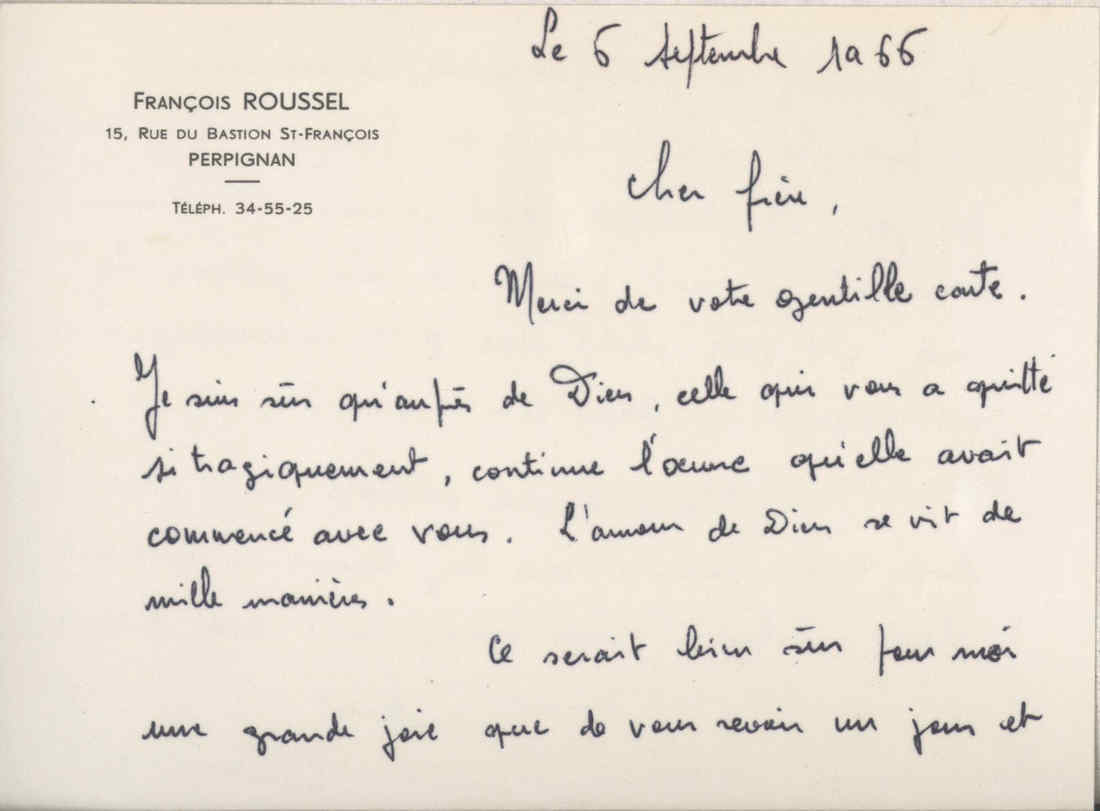 Le 6 septembre 1966
FRANÇOIS ROUSSEL
15, RUE DU BASTION ST-FRANÇOIS
PERPIGNAN
TÉLÉPH. 34-55-25
Cher frère,
Merci de votre gentille carte.
Je suis sûr qu'auprès de Dieu, celle qui vous a quitté
si tragiquement, continue l'œuvre qu'elle avait
commencé avec vous. L'amour de Dieu se vit de
mille manières.
Ce serait bien sûr pour moi
une grande joie que de vous revoir un jour et